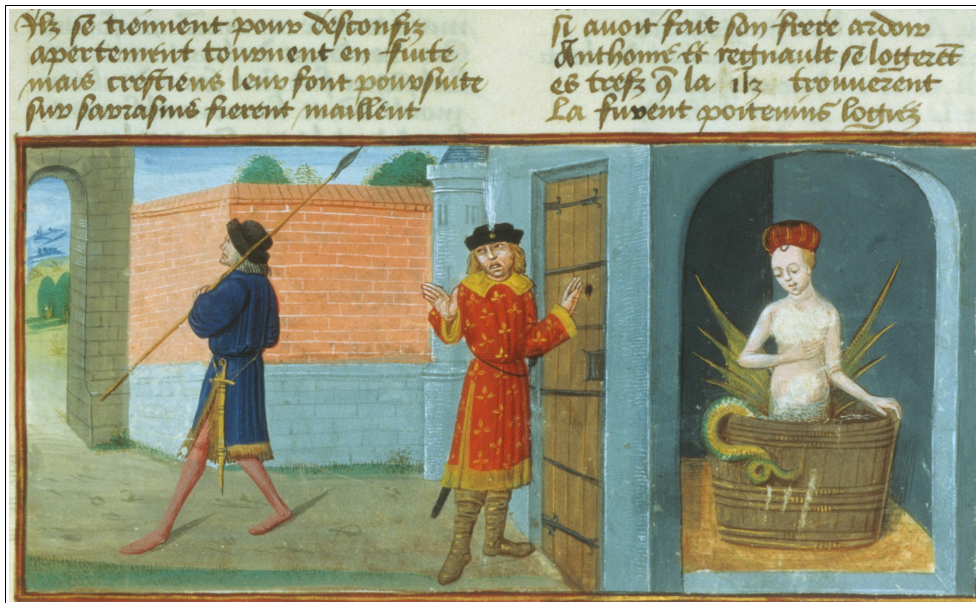 Ilz se tiennent pour desconfiz
apertement tournent en fuite
mais crestiens leur font poursuite
sur sarrasins fierent maillent
si auoit fait son frere ardoir
Anthoine et regnault se logerēt
es trefz q̄ la ilz trouuerent
La furent poiteuins logiez